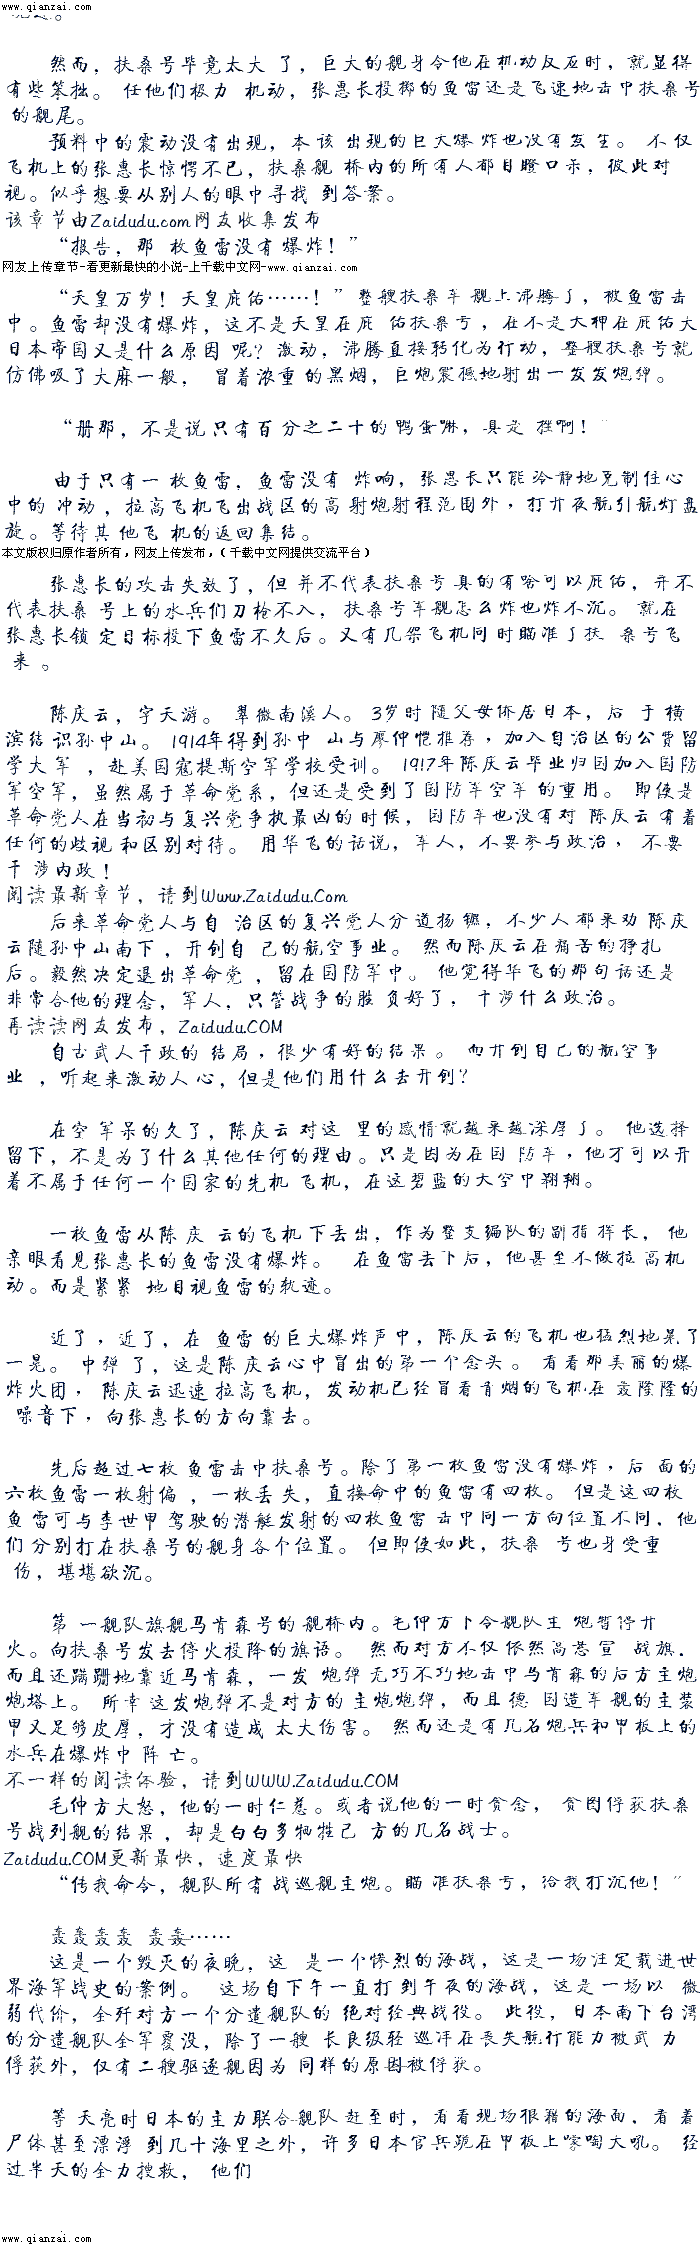 www.qianzai.com
然而，扶桑号毕竟太大 了，巨大的舰身令他在机动反应时，就显得
有些笨拙。 任他们极力 机动，张惠长投掷的鱼雷还是飞速地击中扶桑号
的舰尾。
预料中的震动没有出现，本该 出现的巨大爆炸也没有发生。 不仅
飞机上的张惠长惊愕不已，扶桑舰 桥内的所有人都目瞪口呆，彼此对
视。似乎想要从别人的眼中寻找 到答案。
该章节由Zaidudu.com网友收集发布
“报告，那 枚鱼雷没有爆炸！”
网友上传章节-看更新最快的小说-上千载中文网-www.qianzai.com
“天皇万岁！天皇庇佑……！”整艘扶桑军 舰上沸腾了，被鱼雷击
中。鱼雷却没有爆炸，这不是天皇在庇 佑扶桑号，在不是大神在庇佑大
日本帝国又是什么原因 呢？激动，沸腾直接转化为行动，整艘扶桑号就
仿佛吸了大麻一般， 冒着浓重的黑烟，巨炮震撼地射出一发发炮弹。
“册那，不是说只有百分之二十的鸭蛋嘛，真是 挫啊！”
由于只有一 枚鱼雷，鱼雷没有 炸响，张惠长只能冷静地克制住心
中的 冲动，拉高飞机飞出战区的高射炮射程范围外，打开夜航引航灯盘
旋。等待其他飞 机的返回集结。
本文版权归原作者所有，网友上传发布，（千载中文网提供交流平台）
张惠长的攻击失效了，但 并不代表扶桑号真的有啥可以庇佑，并不
代表扶桑 号上的水兵们刀枪不入， 扶桑号军舰怎么炸也炸不沉。 就在
张惠长锁 定目标投下鱼雷不久后。又有几架飞机同时瞄准了扶 桑号飞
来 。
陈庆云，字天游。 翠微南溪人。 3岁时随父母侨居日本，后 于横
滨结识孙中山。 1914年得到孙中 山与廖仲恺推荐，加入自治区的公费留
学大军 ，赴美国寇提斯空军学校受训。 1917年陈庆云毕业归国加入国防
军空军，虽然属于革命党系，但还是受到了国防军空军 的重用。 即使是
革命党人在当初与复兴党争执最凶的时候，国防军也没有对 陈庆云有着
任何的歧视和区别对待。 用华飞的话说，军人，不要参与政治， 不要
干 涉内政！
阅读最新章节，请到Www.Zaidudu.Com
后来革命党人与自 治区的复兴党人分道扬镳，不少人都来劝 陈庆
云随孙中山南下，开创自 己的航空事业。 然而陈庆云在痛苦的挣扎
后。毅然决定退出革命党 ，留在国防军中。 他觉得华飞的那句话还是
非常合他的理念，军人，只管战争的胜 负好了， 干涉什么政治。
再读读网友发布，Zaidudu.COM
自古武人干政的 结局，很少有好的结果 。 而开创自己的航空事
业 ，听起来激动人心，但是他们用什么去开创？
在空 军呆的久了，陈庆云对这 里的感情就越来越深厚了。 他选择
留下，不是为了什么其他任何的理由。只是因为在国 防军，他才可以开
着不属于任何一个国家的先机 飞机，在这碧蓝的天空中翱翔。
一枚鱼雷从陈 庆 云的飞机下丢出，作为整支编队的副指挥长， 他
亲眼看见张惠长的鱼雷没有爆炸。 在鱼雷丢下后，他甚至不做拉高机
动。而是紧紧 地目视鱼雷的轨迹。
近了，近了，在 鱼雷的巨大爆炸声中，陈庆云的飞机也猛烈地晃了
一晃。 中弹 了，这是陈庆云心中冒出的第一个念头。 看着那美丽的爆
炸火团， 陈庆云迅速拉高飞机，发动机已经冒着青烟的飞机在 轰隆隆的
噪音下，向张惠长的方向靠去。
先后超过七枚鱼雷击中扶桑号。除了第一枚鱼雷没有爆炸，后 面的
六枚鱼雷一枚射偏 ，一枚丢失，直接命中的鱼雷有四枚。 但是这四枚
鱼雷可与李世甲 驾驶的潜艇发射的四枚鱼雷 击中同一方向位置不同，他
们 分别打在扶桑号的舰身各个位置。 但即使如此，扶桑 号也身受重
伤，堪堪欲沉。
第 一舰队旗舰马肯森号的舰桥内。毛仲方下令舰队主 炮暂停开
火。向扶桑号发去停火投降的旗语。 然而对方不仅依然高悬宣 战旗，
而且还蹒跚地靠近马肯森，一发 炮弹无巧不巧地击中马肯森的后方主炮
炮塔上。 所幸这发炮弹不是对方的主炮炮弹，而且德 国造军舰的主装
甲又足够皮厚，才没有造成 太大伤害。 然而还是有几名炮兵和甲板上的
水兵在爆炸中 阵 亡。
不一样的阅读体验，请到WWW.Zaidudu.COM
毛仲方大怒，他的一时仁慈。或者说他的一时贪念， 贪图俘获扶桑
号战列舰的结果，却是白白多牺牲己 方的几名战士。
Zaidudu.COM更新最快，速度最快
“传我命令，舰队所有战巡舰主炮。瞄 准扶桑号，给我打沉他！”
轰轰轰轰 轰轰……
这是一个毁灭的夜晚，这 是一个惨烈的海战，这是一场注定载进世
界海军战史的案例。 这场自下午一直打到午夜的海战，这是一场以 微
弱代价，全歼对方一个分遣舰队的 绝对经典战役。 此役，日本南下台湾
的分遣舰队全军覆没，除了一艘 长良级轻 巡洋在丧失航行能力被武 力
俘获外，仅有二艘驱逐舰因为 同样的原因被俘获。
等天亮时日本的主力联合舰队赶至时，看着现场狼藉的海面，看着
尸体甚至漂浮 到几十海里之外，许多日本官兵跪在甲板上嚎啕大吼。 经
过半天的全力搜救， 他们
www.qianzai.com